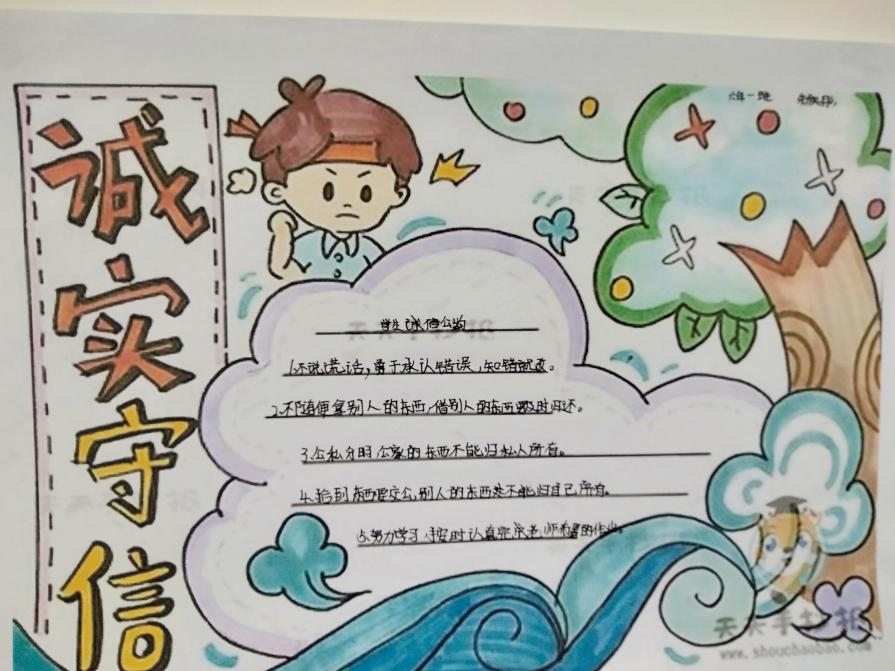 诚实守信
六年一班
学生诚信公约
1.不说谎话,勇于承认错误,知错就改。
2.不随便拿别人的东西,借别人的东西要及时归还。
3.公私分明公家的东西不能归私人所有。
4.拾到东西要交公,别人的东西不能归自己所有。
5.努力学习,按时认真完成老师布置的作业。
天天手抄报
www.shouchaobao.com